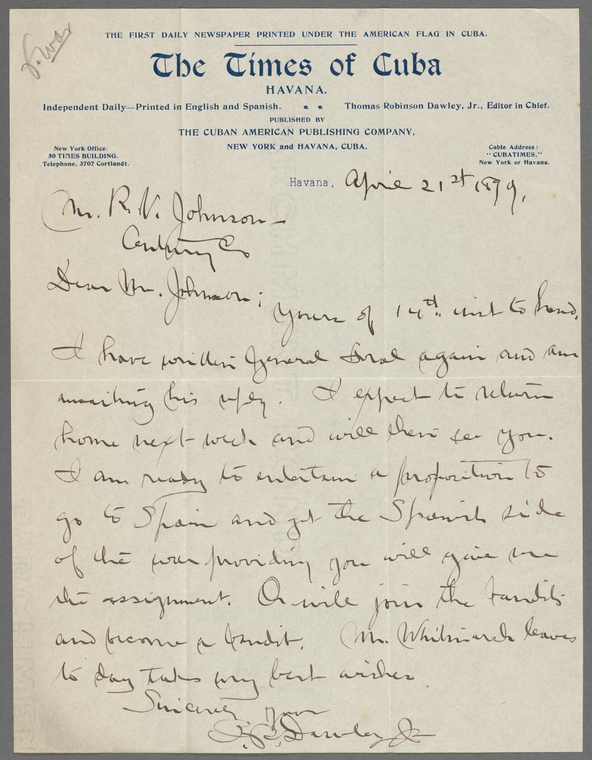 S. War
THE FIRST DAILY NEWSPAPER PRINTED UNDER THE AMERICAN FLAG IN CUBA.
The Times of Cuba
HAVANA.
Independent Daily—Printed in English and Spanish. Thomas Robinson Dawley, Jr., Editor in Chief.
PUBLISHED BY
THE CUBAN AMERICAN PUBLISHING COMPANY,
NEW YORK and HAVANA, CUBA.
New York Office:
50 TIMES BUILDING.
Telephone, 3707 Cortlandt.
Cable Address:
"CUBATIMES,"
New York or Havana.
Havana, April 21st 1899,
Mr. R. V. Johnson—
Century Co
Dear Mr. Johnson:
Yours of 14th inst to hand.
I have written General Toral again and am
awaiting his reply. I expect to return
home next week and will then see you.
I am ready to entertain a proposition to
go to Spain and get the Spanish side
of the war providing you will give me
the assignment. Or will join the bandits
and become a bandit. Mr. Whitmarsh leaves
to day takes my best wishes.
Sincerely yours
Dawley Jr